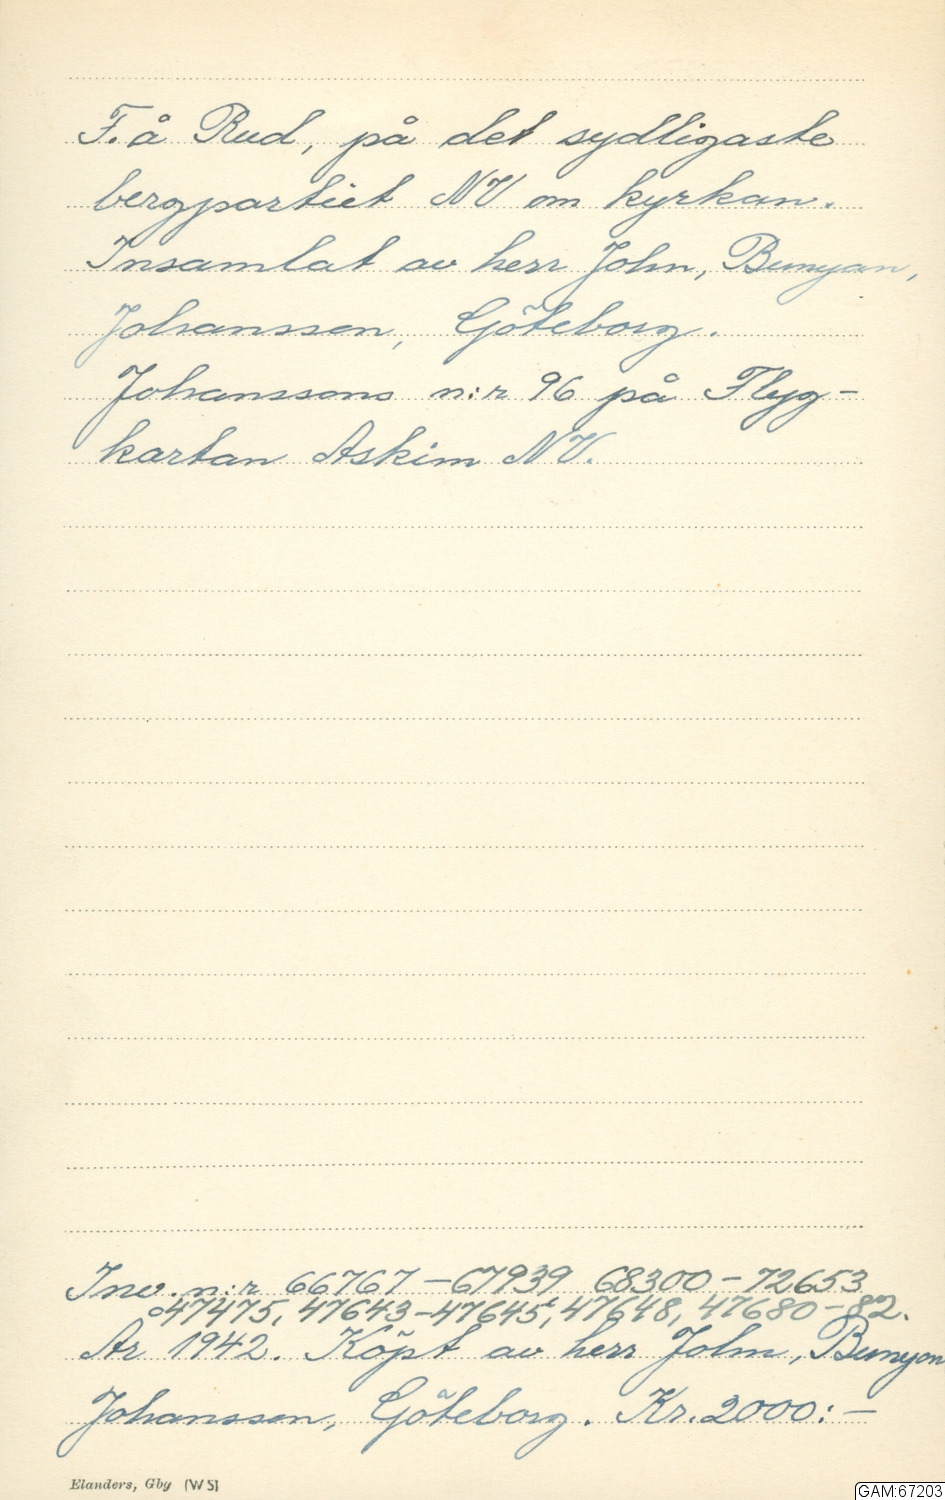 F. å Rud, på det sydligaste
bergpartiet NV om kyrkan.
Insamlat av herr John, Bunyan,
Johansson, Göteborg.
Johanssons n:r 96 på Flyg-
kartan Askim NV.
Inv. n:r 66767–67939 68300–72653
o 47475, 47643–47645, 47648, 47680–82.
År 1942. Köpt av herr John, Bunyan
Johansson, Göteborg. Kr. 2000:–
Elanders, Gby (WS)
GAM:67203